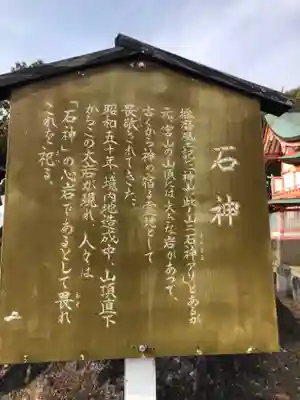 石神
いしがみ
播磨風土記に「神山、此ノ山ニ石神アリ」とあるが
元、宮山の山頂には大きな岩があって、
古くから神の宿る霊地として
畏敬されてきた、
昭和五十年、境内地造成中、山頂直下
からこの大岩が現れ、人々は
「石神」の心岩であるとして畏れ
おそ
これを祀る。